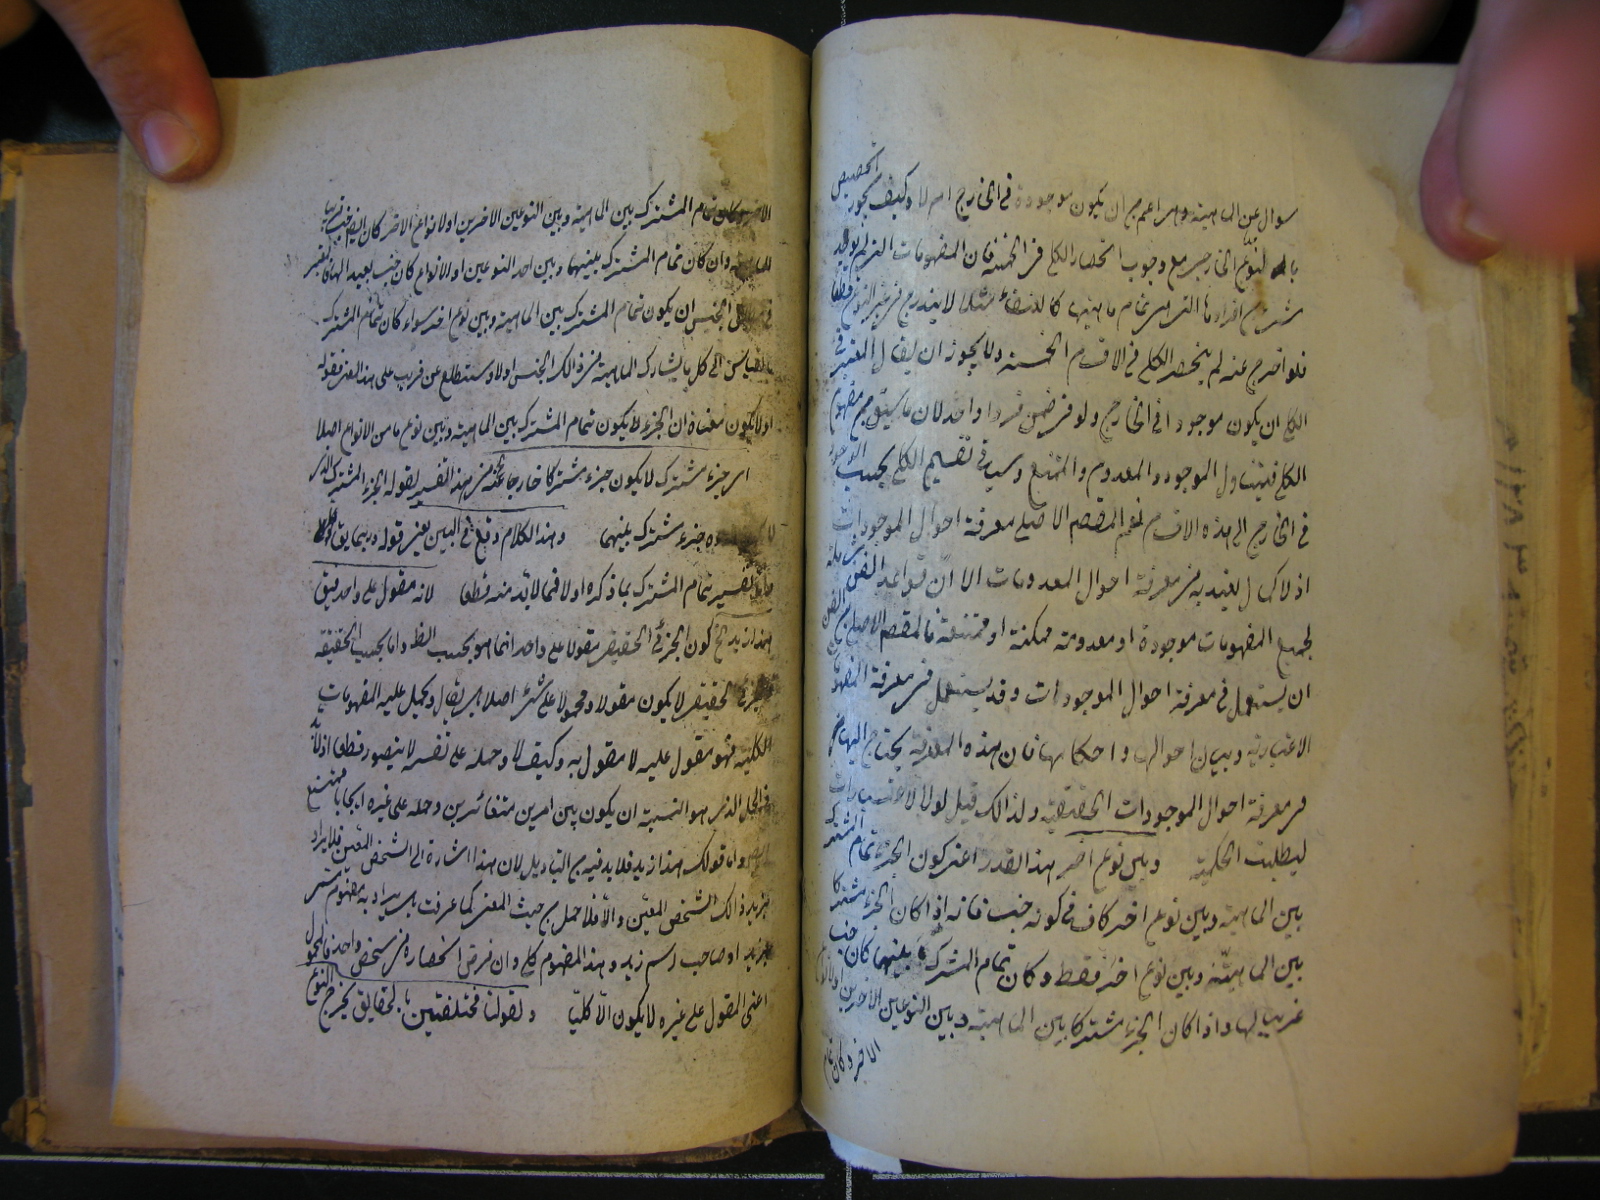 سوال عن الماهية وهى اعم من ان يكون موجودة فى الخارج ام لا وكيف يجوز التخصيص
بالنوع الخارجى مع وجوب انحصار الكلى فى الخمسة فان المفهومات التى لم يوجد
شئ من افرادها التى هى تمام ماهيتها كالعنقاء مثلا لا يندرج فى غير النوع قطعا
فلو اخرج عنه لم ينحصر الكلى فى الاقسام الخمسة ولا يجوز ان يقال المعتبر فى
الكلى ان يكون موجودا فى الخارج ولو فى ضمن فرد واحد لان ما سبق من مفهوم
الكلى فيتناول الموجود والمعدوم والممتنع وسياتى تقسيم الكلى بحسب الوجود
فى الخارج الى هذه الاقسام نعم المقصد الاصلى معرفة احوال الموجودات
اذ لا كمال يعتد به فى معرفة احوال المعدومات الا ان قواعد الفن شاملة
لجميع المفهومات موجودة او معدومة ممكنة او ممتنعة فالمقصد الاصلى من الفن
ان يستعمل فى معرفة احوال الموجودات وقد يستعمل فى معرفة المفهومات
الاعتبارية وبيان احوالها واحكامها فان هذه المعرفة يحتاج اليها
فى معرفة احوال الموجودات الحقيقية ولذالك قيل لولا الاعتبارات
لبطلت الحكمة وبين نوع اخر هذا القدر اعنى كون الجزء تمام المشترك
بين الماهية وبين نوع اخر كاف فى كونه جنسا فانه اذا كان الجزء مشتركا
بين الماهية وبين نوع اخر فقط وكان تمام المشترك بينهما كان جنسا
قريبا لها واذا كان الجزء مشتركا بين الماهية وبين النوعين الاخرين او الانواع
الاخر وكان تمام
الاخر وكان تمام المشترك بين الماهية وبين النوعين الاخرين او الانواع الاخر كان ايضا جنسا قريبا
للماهية وان كان تمام المشترك بينها وبين احد النوعين او الانواع كان جنسا بعيدا لها فالمعتبر
فى الجنس ان يكون تمام المشترك بين الماهية وبين نوع اخر سواء كان تمام المشترك
بالقياس الى كل ما يشارك الماهية فى ذالك الجنس اولا وستطلع عن قريب على هذا المعنى بقوله
او لا يكون معناه ان الجزء لا يكون تمام المشترك بين الماهية وبين نوع ما من الانواع اصلا
اى جزء مشترك لا يكون جزء مشتركا خارجا عنه هذا التفسير لقوله الجزء المشترك الذى
لا يكون وراءه جزء مشترك بينهما وهذا الكلام وقع فى البين يعنى قوله وربما يقال
واما تفسير تمام المشترك بما ذكره اولا فمما لا بد منه قطعا لانه مقول على واحد فيقال
هذا زيد كون الجزئى الحقيقى مقولا على واحد انما هو بحسب الظ واما بحسب الحقيقة
فالجزئى الحقيقى لا يكون مقولا ومحمولا على شئ اصلا بل يقال ويحمل عليه المفهومات
الكلية فهو مقول عليه لا مقول به وكيف لا وحمله على نفسه لا يتصور قطعا اذ لا بد
فى الحمل الذى هو النسبة ان يكون بين امرين متغائرين وحمله على غيره ايجابا ممتنع
ايضا واما قولك هذا زيد فلا بد فيه من التاويل لان هذا اشارة الى الشخص المعين فلا يراد
بزيد ذالك الشخص المعين والا فلا حمل من حيث المعنى كما عرفت بل يراد به مفهوم مسمى
بزيد او صاحب اسم زيد وهذا المفهوم كلى وان فرض انحصاره فى شخص واحد فالمحمول
اعنى المقول على غيره لا يكون الا كليا ولقولنا مختلفتين بالحقايق يخرج النوع